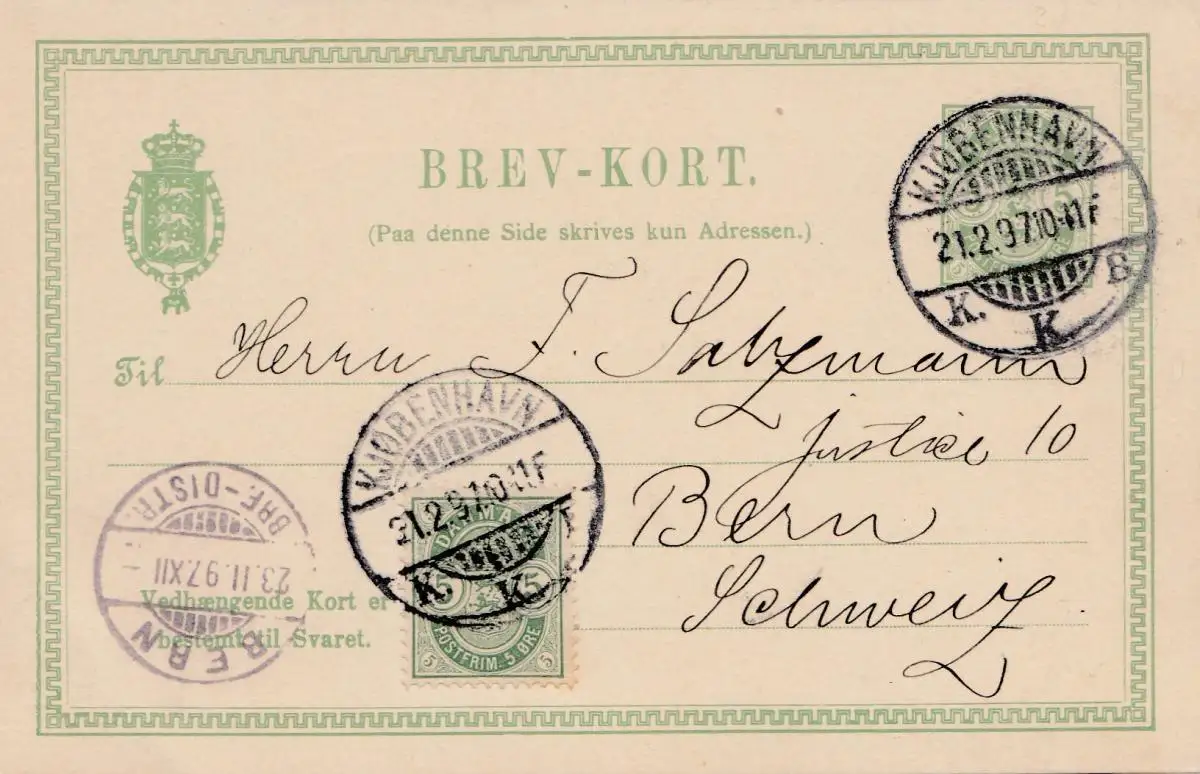 BREV-KORT.
(Paa denne Side skrives kun Adressen.)
KJØBENHAVN
21.2.97.10-11F
K. K. B
5 5
Til Herrn F. Salzmann
Justice 10
Bern
Schweiz
KJØBENHAVN
21.2.97.10-11F
K. K.
DANMARK
5 5
POSTFRIM. 5 ØRE
5 5
BRF-DISTR
23.II.97.XII
BERN
Vedhængende Kort er
bestemt til Svaret.